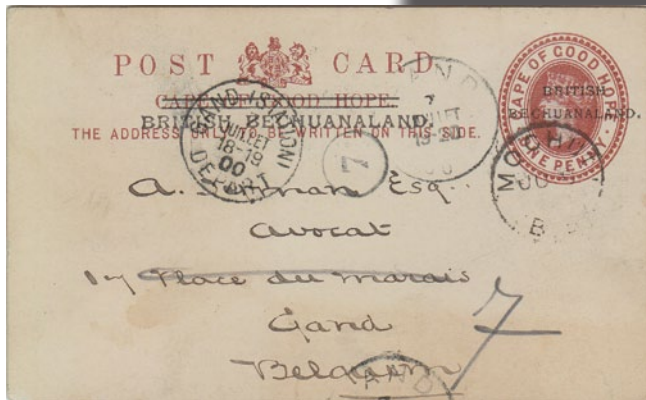 POST CARD
CAPE OF GOOD HOPE.
BRITISH BECHUANALAND.
THE ADDRESS ONLY TO BE WRITTEN ON THIS SIDE.
CAPE OF GOOD HOPE
BRITISH
BECHUANALAND.
ONE PENNY
GAND (STATION)
JUILLET
18-19
00
DEPART
7
Esq.
Avocat
Place du Marais
Gand
Belgium
7